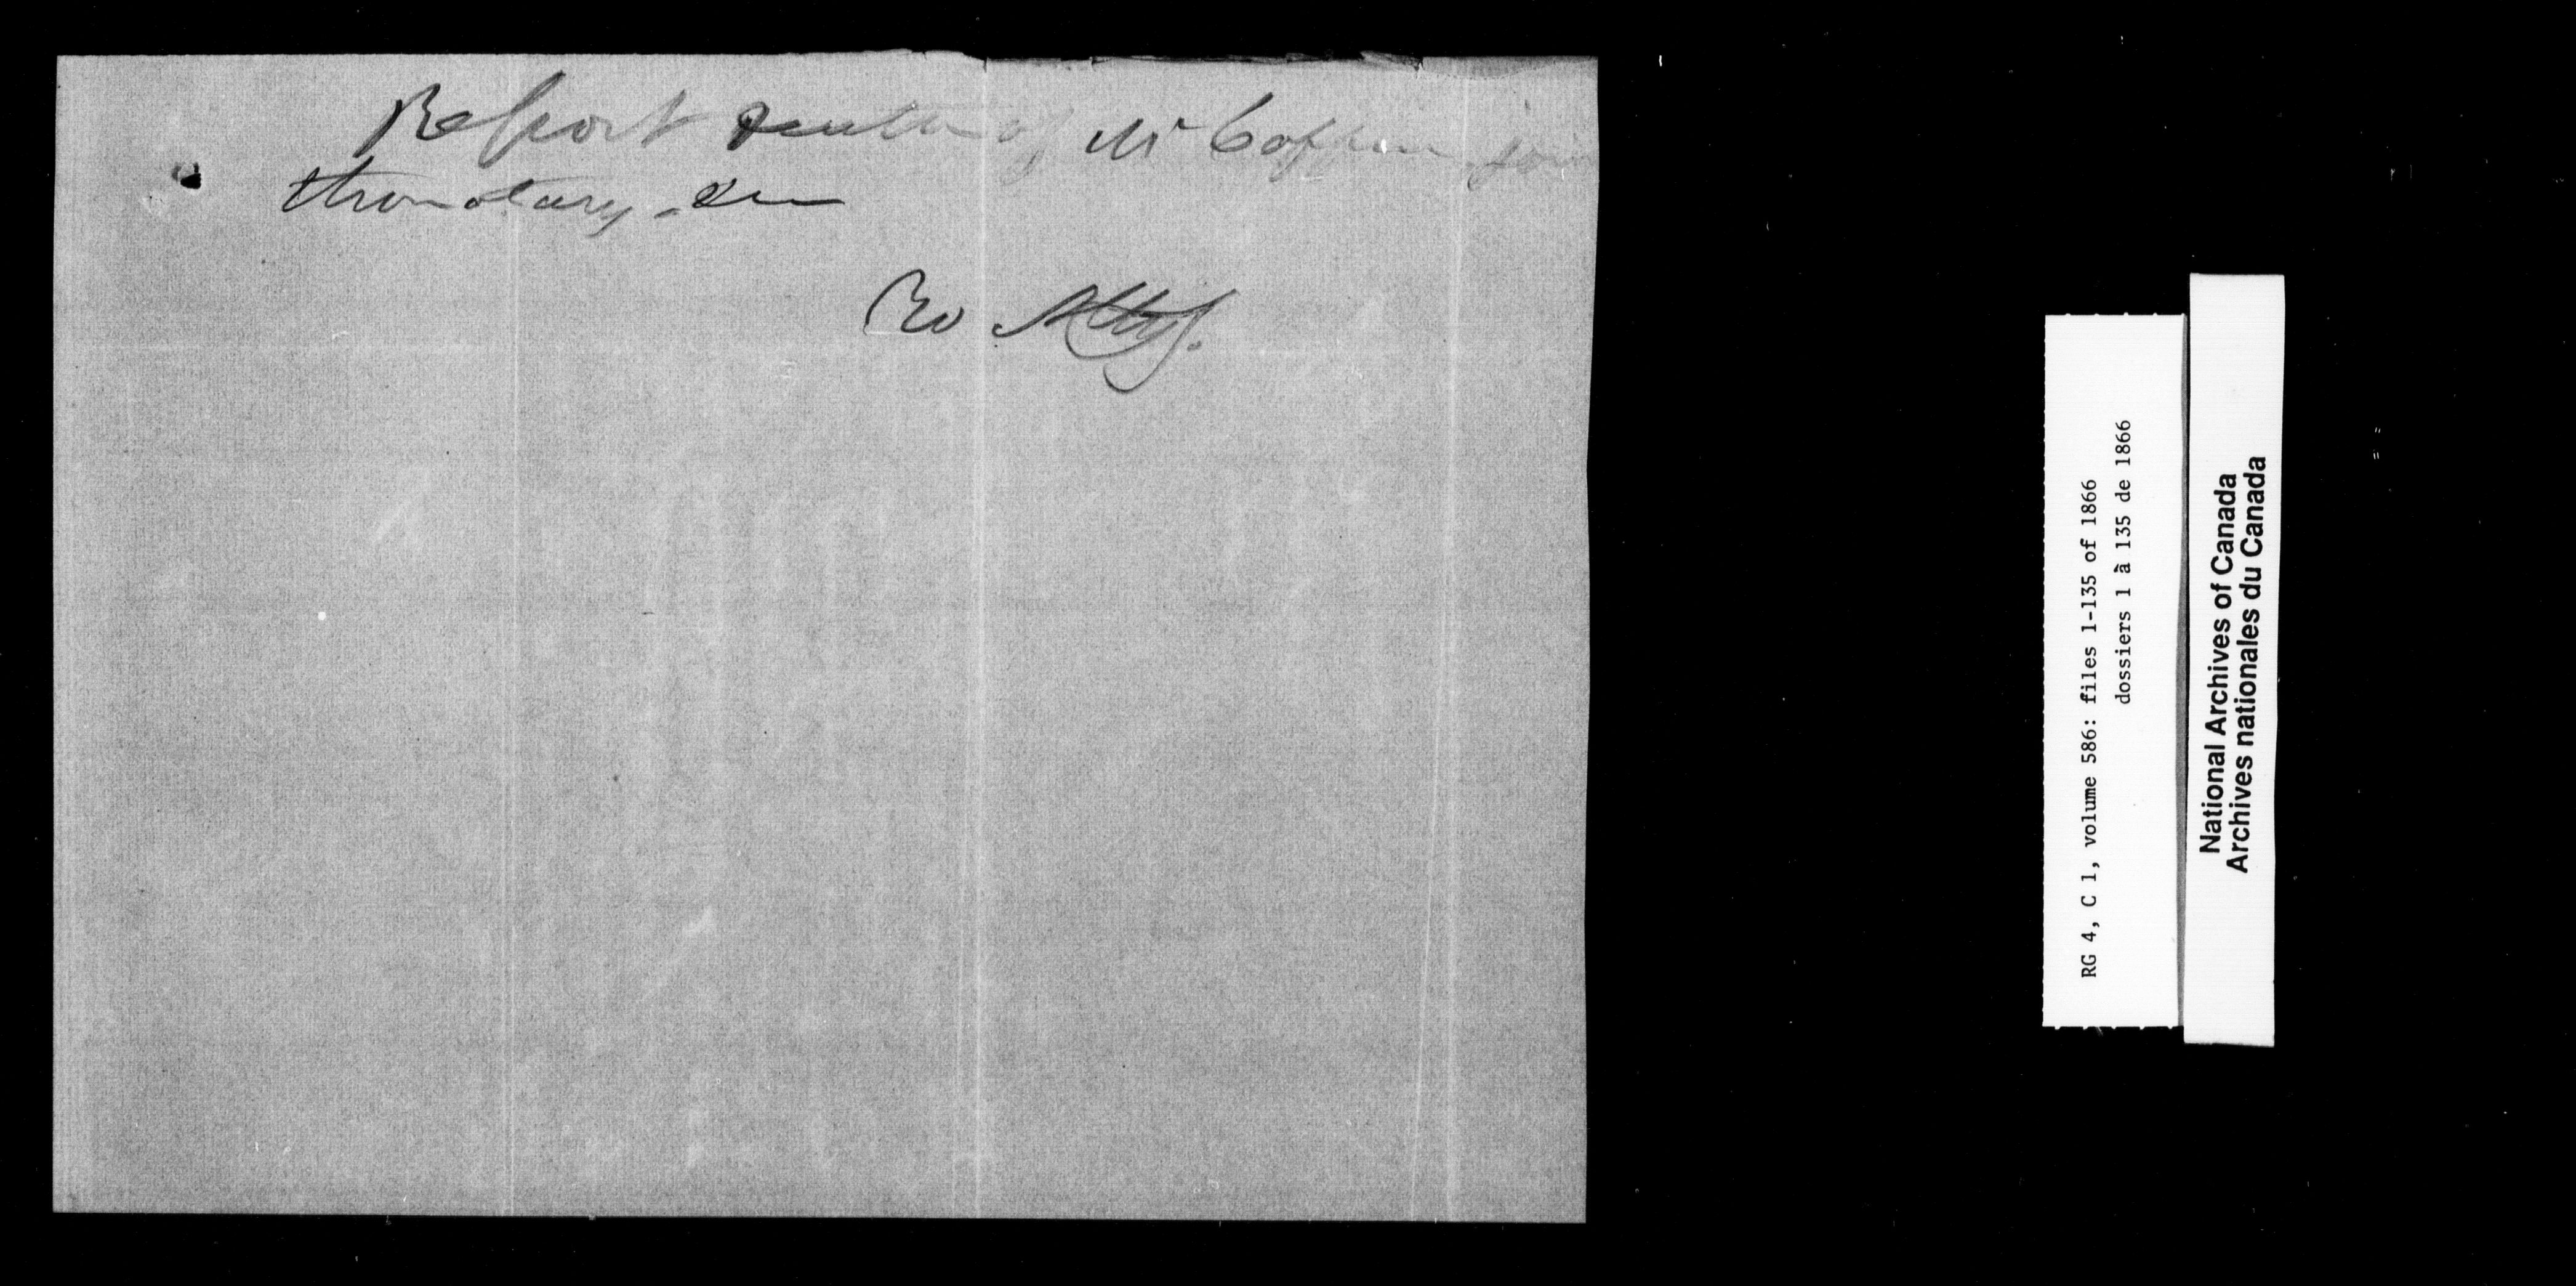 Report death of Mr Coffin Joint
thonotary -
RG 4, C 1, volume 586: files 1-135 of 1866
dossiers 1 à 135 de 1866
National Archives of Canada
Archives nationales du Canada